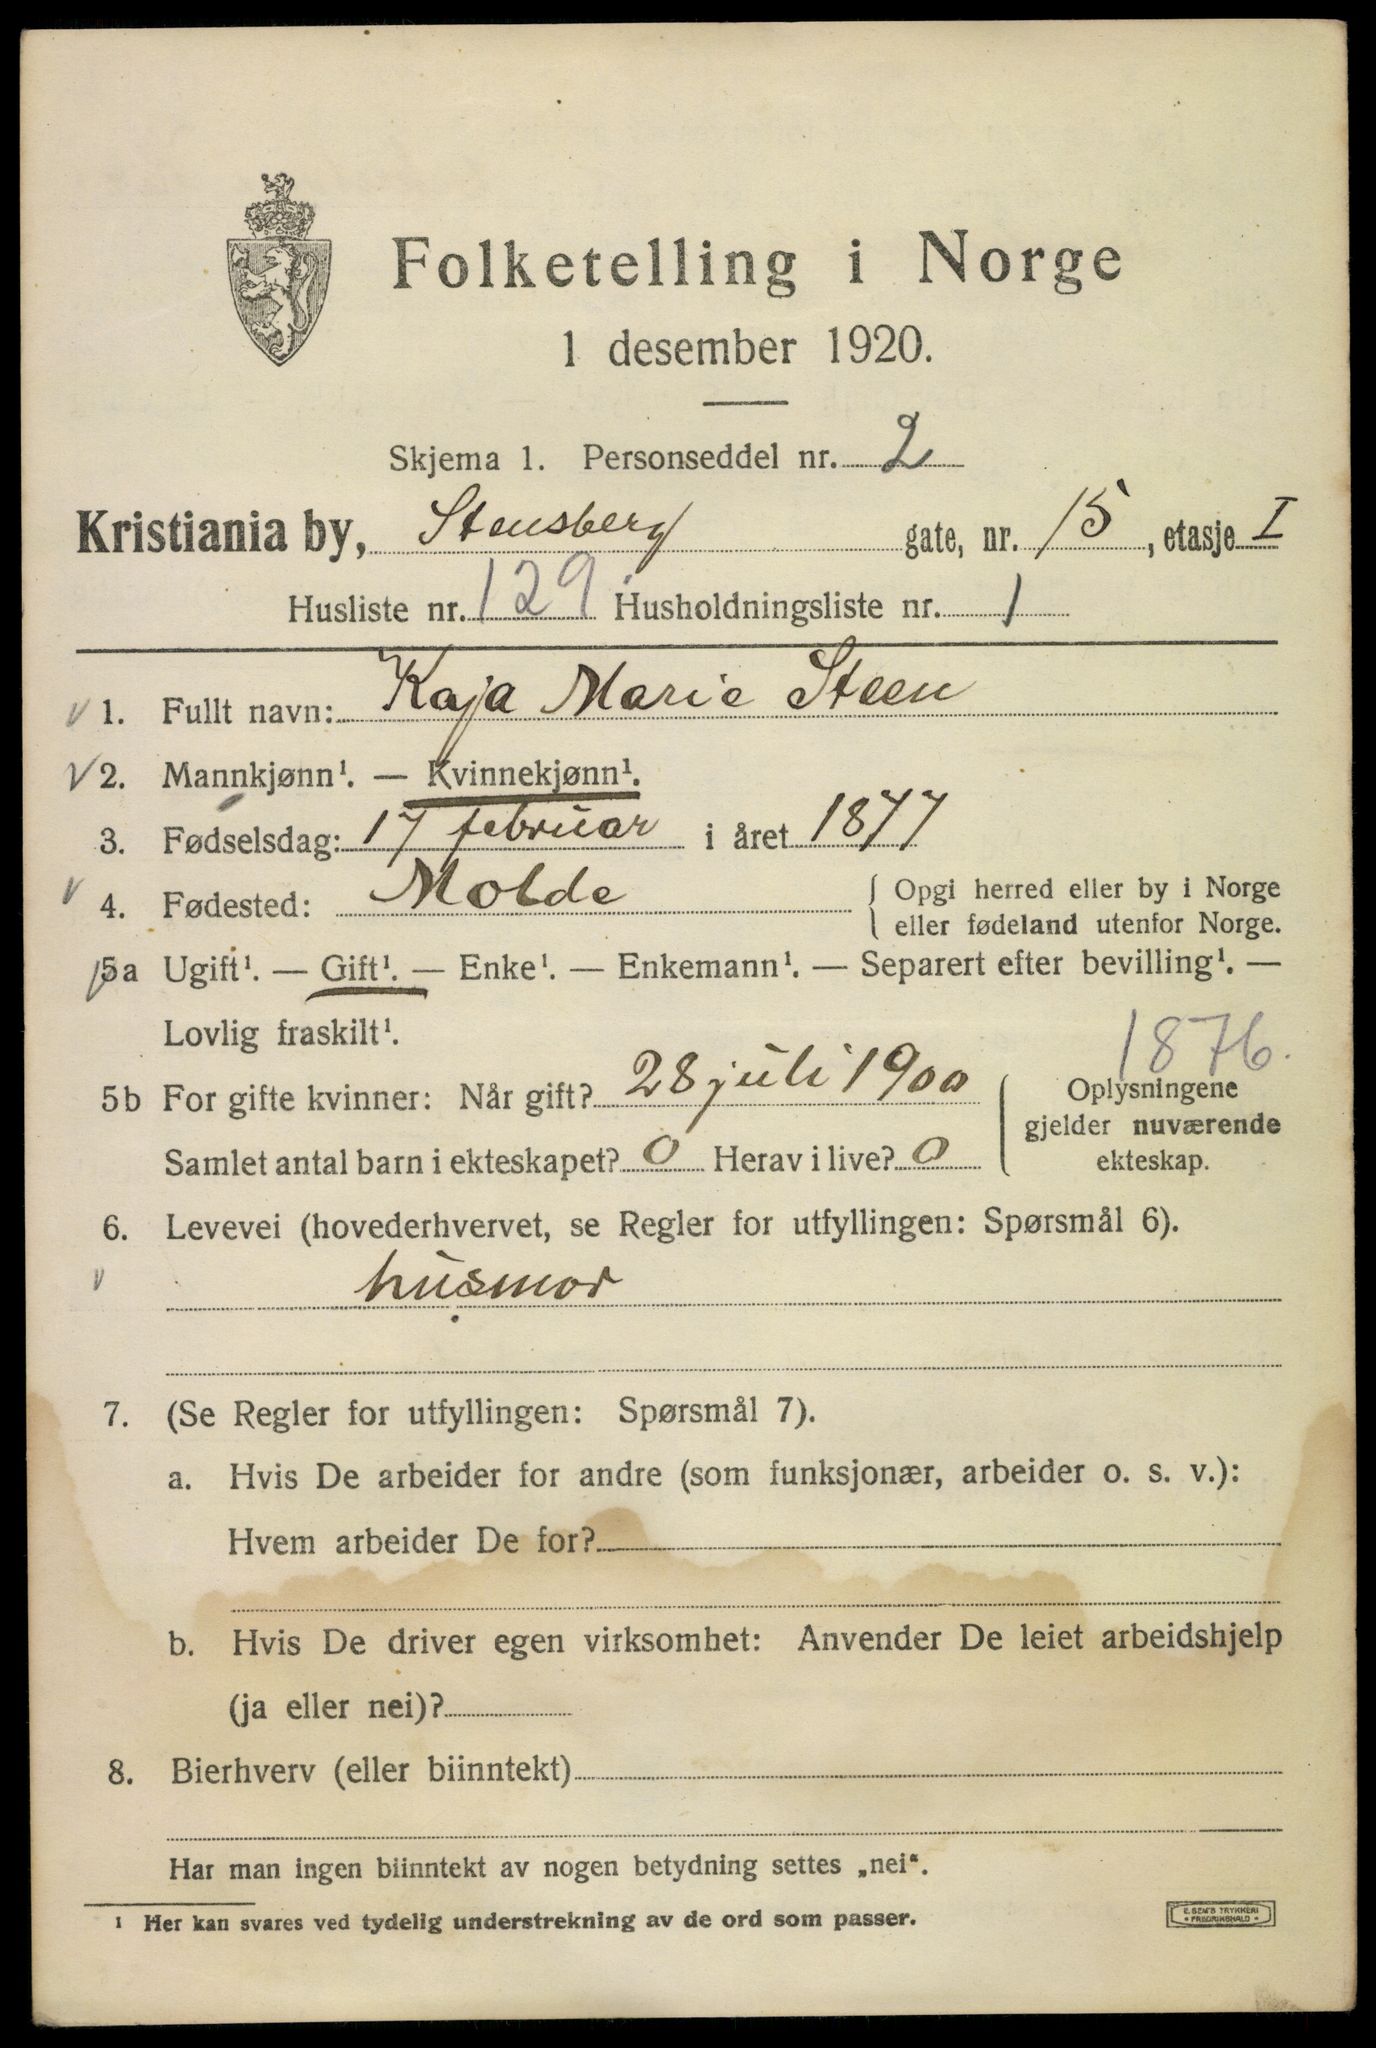 Folketelling i Norge
1 desember 1920.
Skjema 1. Personseddel nr. 2
Kristiania by, Stensberg gate, nr. 15, etasje I
Husliste nr. 129 Husholdningsliste nr. 1
1. Fullt navn: Kaja Marie Steen
2. Mannkjønn¹. — Kvinnekjønn¹.
3. Fødselsdag: 17 februar i året 1877
4. Fødested: Molde { Opgi herred eller by i Norge
eller fødeland utenfor Norge.
5a Ugift¹. — Gift¹. — Enke¹. — Enkemann¹. — Separert efter bevilling¹. —
Lovlig fraskilt¹.
1876.
5b For gifte kvinner: Når gift? 28 juli 1900
Samlet antal barn i ekteskapet? 0 Herav i live? 0
Oplysningene
gjelder nuværende
ekteskap.
6. Levevei (hovederhvervet, se Regler for utfyllingen: Spørsmål 6).
husmor
7. (Se Regler for utfyllingen: Spørsmål 7).
a. Hvis De arbeider for andre (som funksjonær, arbeider o. s. v.):
Hvem arbeider De for?
b. Hvis De driver egen virksomhet: Anvender De leiet arbeidshjelp
(ja eller nei)?
8. Bierhverv (eller biinntekt)
Har man ingen biinntekt av nogen betydning settes „nei“.
¹ Her kan svares ved tydelig understrekning av de ord som passer.
E. SEM'S TRYKKERI
FREDRIKSHALD